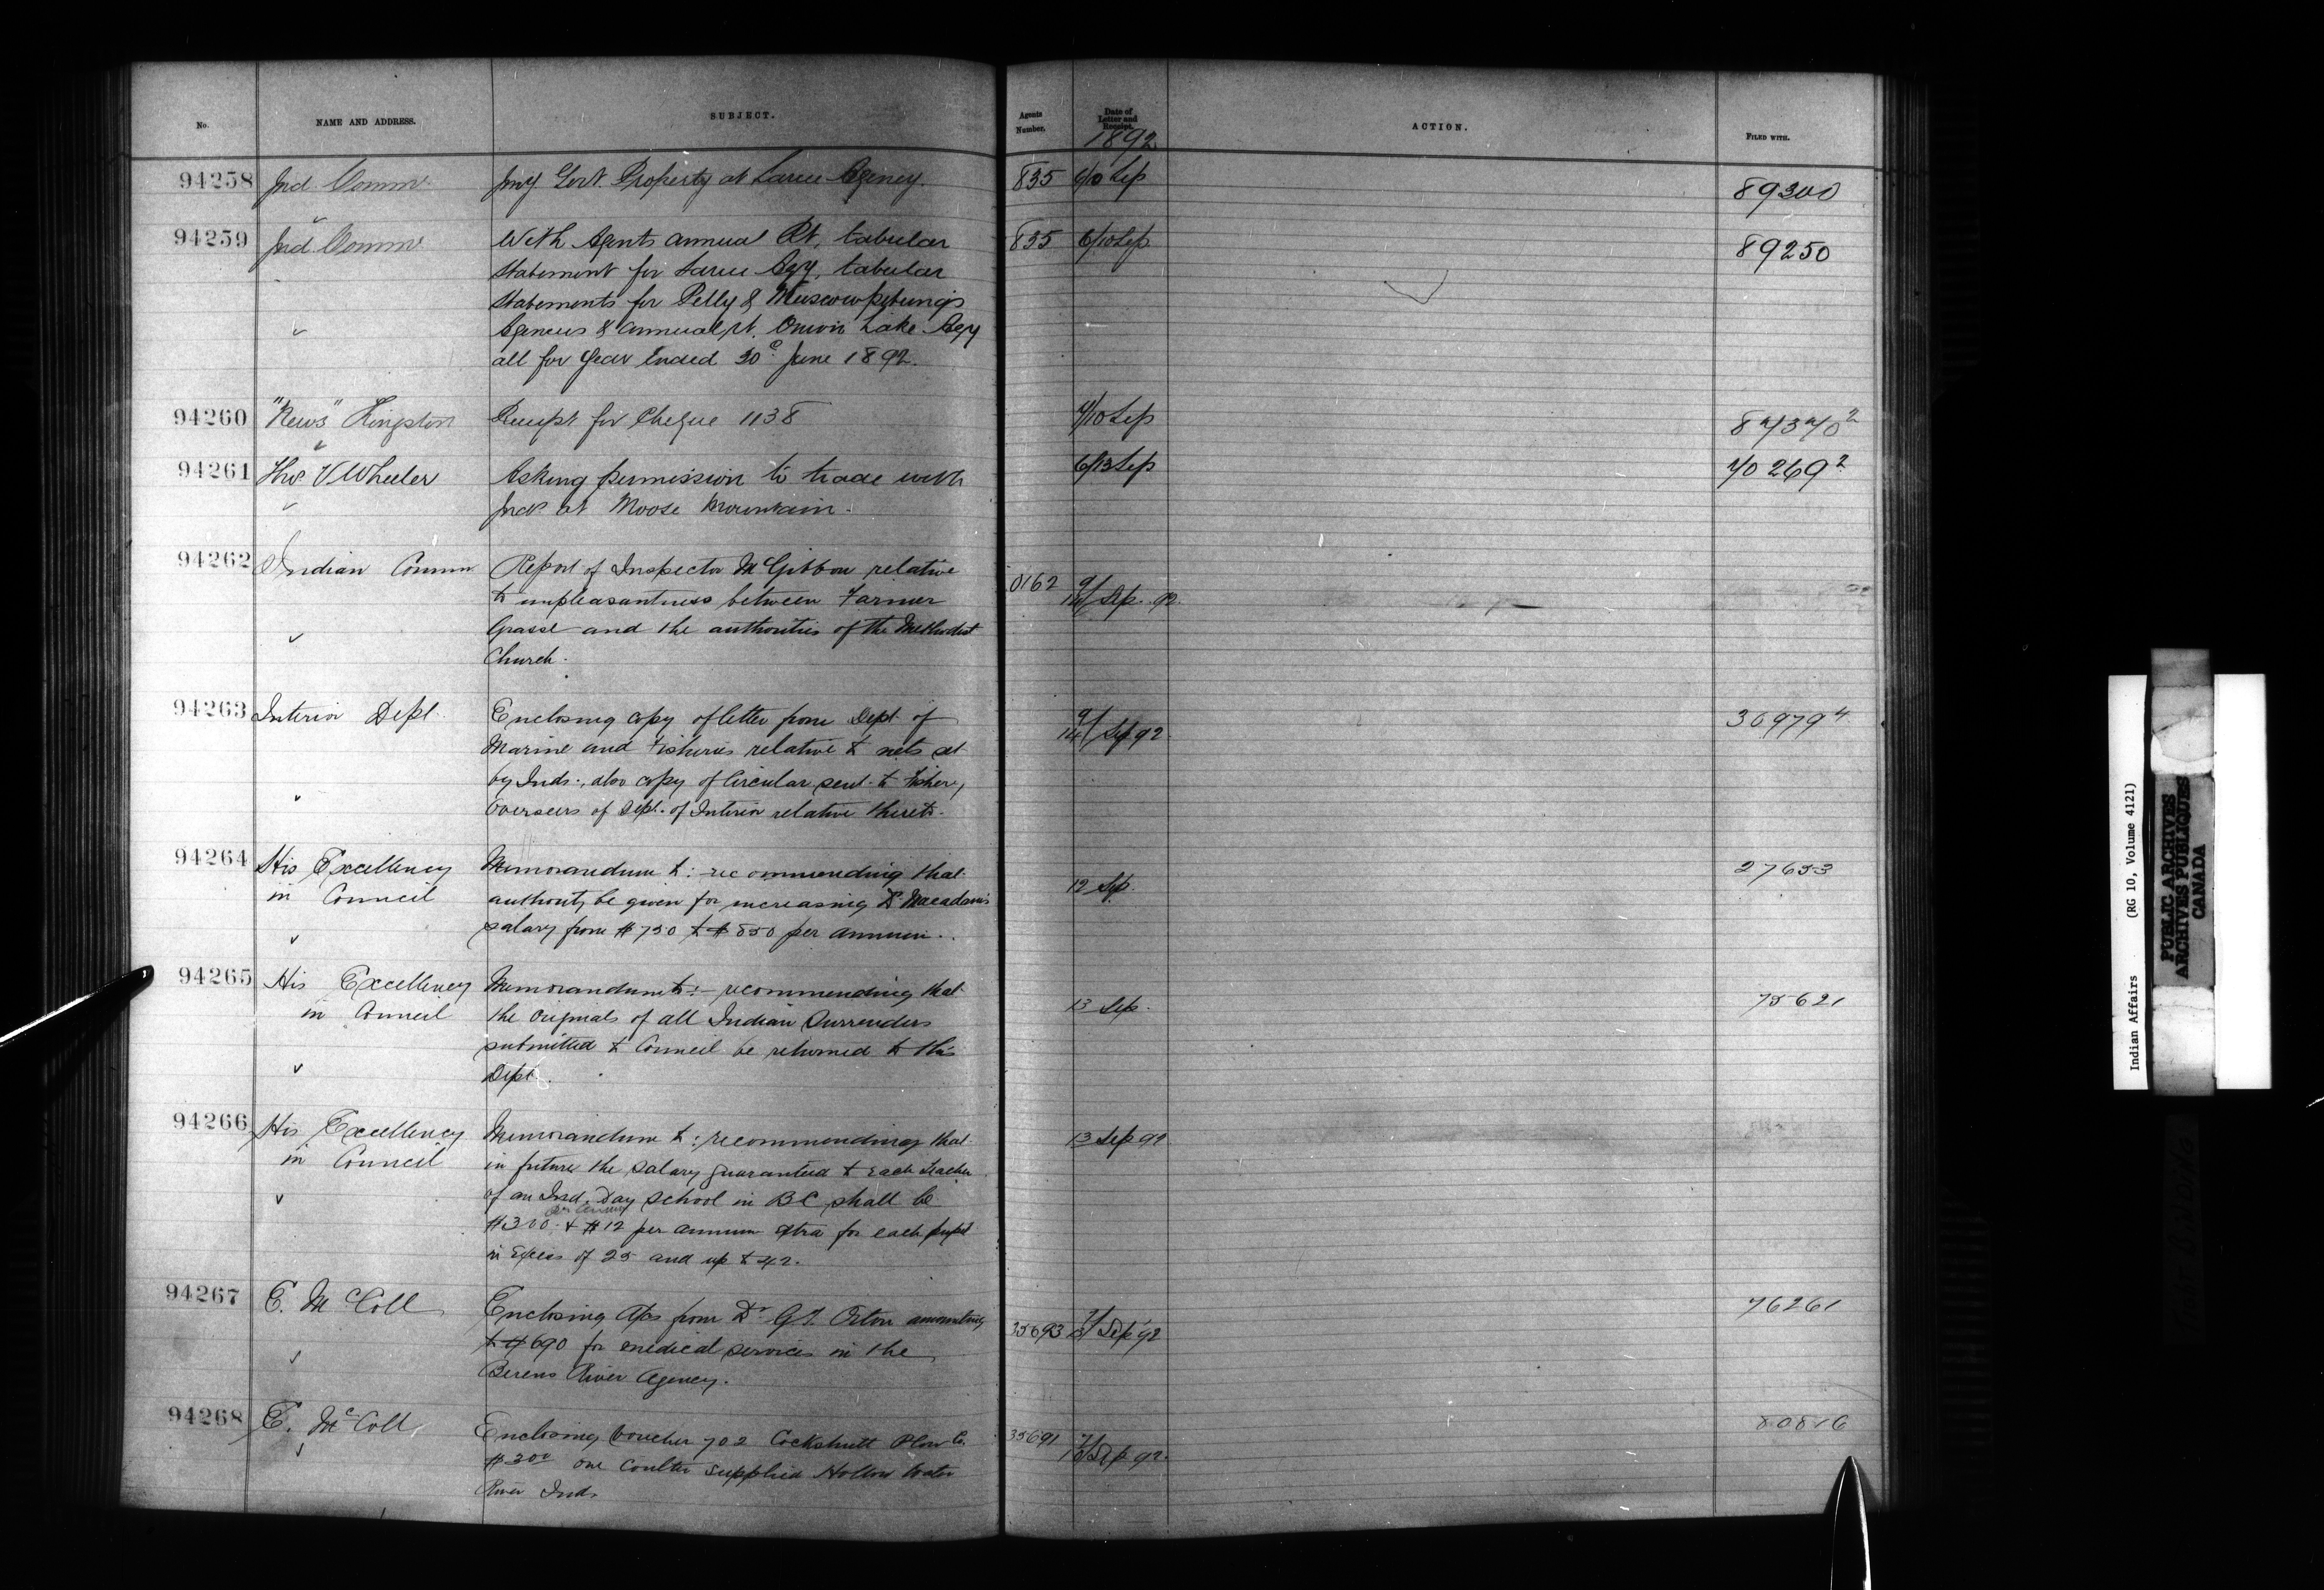 No.
NAME AND ADDRESS.
SUBJECT.
Agents Number.
Date of Letter and Receipt.
ACTION.
FILED WITH.
1892
94258 Ind. Commr. Govt. Property at Sarcee Agency. 835 6/10 Sep 89300
94259 Ind. Commr. With Agents annual Rt, tabular 835 6/10 Sep 89250
Statement for Sarcee Agy, tabular
Statements for Pelly & Muscowpetung's
Agencies & annual rt. Onion Lake Agy
all for year ended 30 June 1892.
94260 "News" Kingston Receipt for Cheque 1138 9/10 Sep 87370²
94261 Thos V Wheeler Asking permission to trade with 6/13 Sep 70269²
Inds at Moose Mountain.
94262 Indian Comm Report of Inspector McGibbon relative 0162 9/14 Sep. 92.
to unpleasantness between Farmer
and the authorities of the Methodist
Church.
94263 Interior Dept. Enclosing copy of letter from Dept. of 9/14 Sep 92. 36979⁴
Marine and Fisheries relative to nets set
by Inds:, also copy of Circular sent to Fishery
Overseers of Dept. of Interior relative thereto.
94264 His Excellency Memorandum to:- recommending that 12 Sep. 27653
in Council authority be given for increasing Dr. Macadam's
salary from $750 to $850 per annum.
94265 His Excellency Memorandum to:- recommending that 13 Sep. 75621
in Council the originals of all Indian Surrenders
submitted to Council be returned to this
Dept.
94266 His Excellency Memorandum to: recommending that 13 Sep 92
in Council in future the salary guaranteed to each teacher
of an Ind. Day School in BC shall be
per annum
$300 & $12 per annum extra for each pupil
in excess of 25 and up to 42.
94267 E. McColl Enclosing a/cs from Dr. G.T. Orton amounting 76261
to $690 for medical services in the 35693 Sep 92
Berens River Agency.
94268 E. McColl Enclosing Voucher 702 Cockshutt Plow Co. 35691 Sep 92. 80816
$3.00 one coulter supplied Hollow Water
River Inds.
Indian Affairs (RG 10, Volume 4121)
PUBLIC ARCHIVES
ARCHIVES PUBLIQUES
CANADA